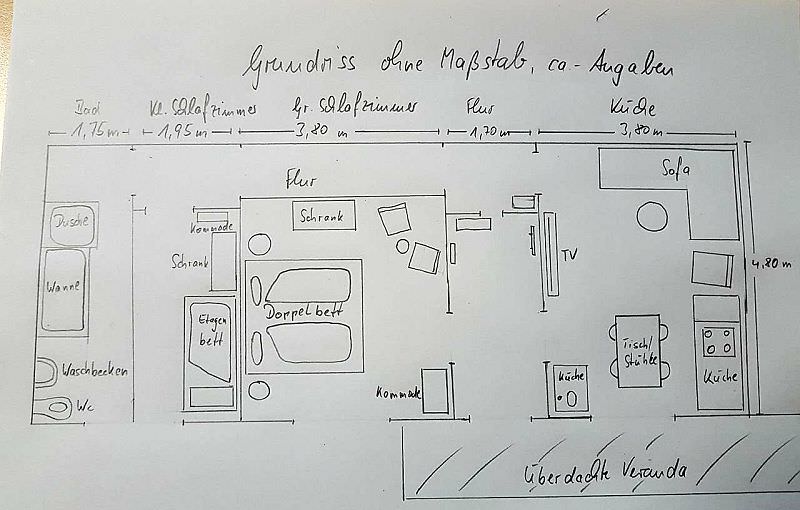 Grundriss ohne Maßstab, ca-Angaben
Bad
Kl. Schlafzimmer
Gr. Schlafzimmer
Flur
Küche
1,75m
1,95 m
3,80 m
1,70 m
3,80 m
Flur
Sofa
Dusche
Kommode
Schrank
Schrank
TV
4,80 m
Wanne
Etagen
bett
Doppelbett
Tisch/
Stühle
Waschbecken
Wc
Kommode
Küche
Küche
Überdachte Veranda